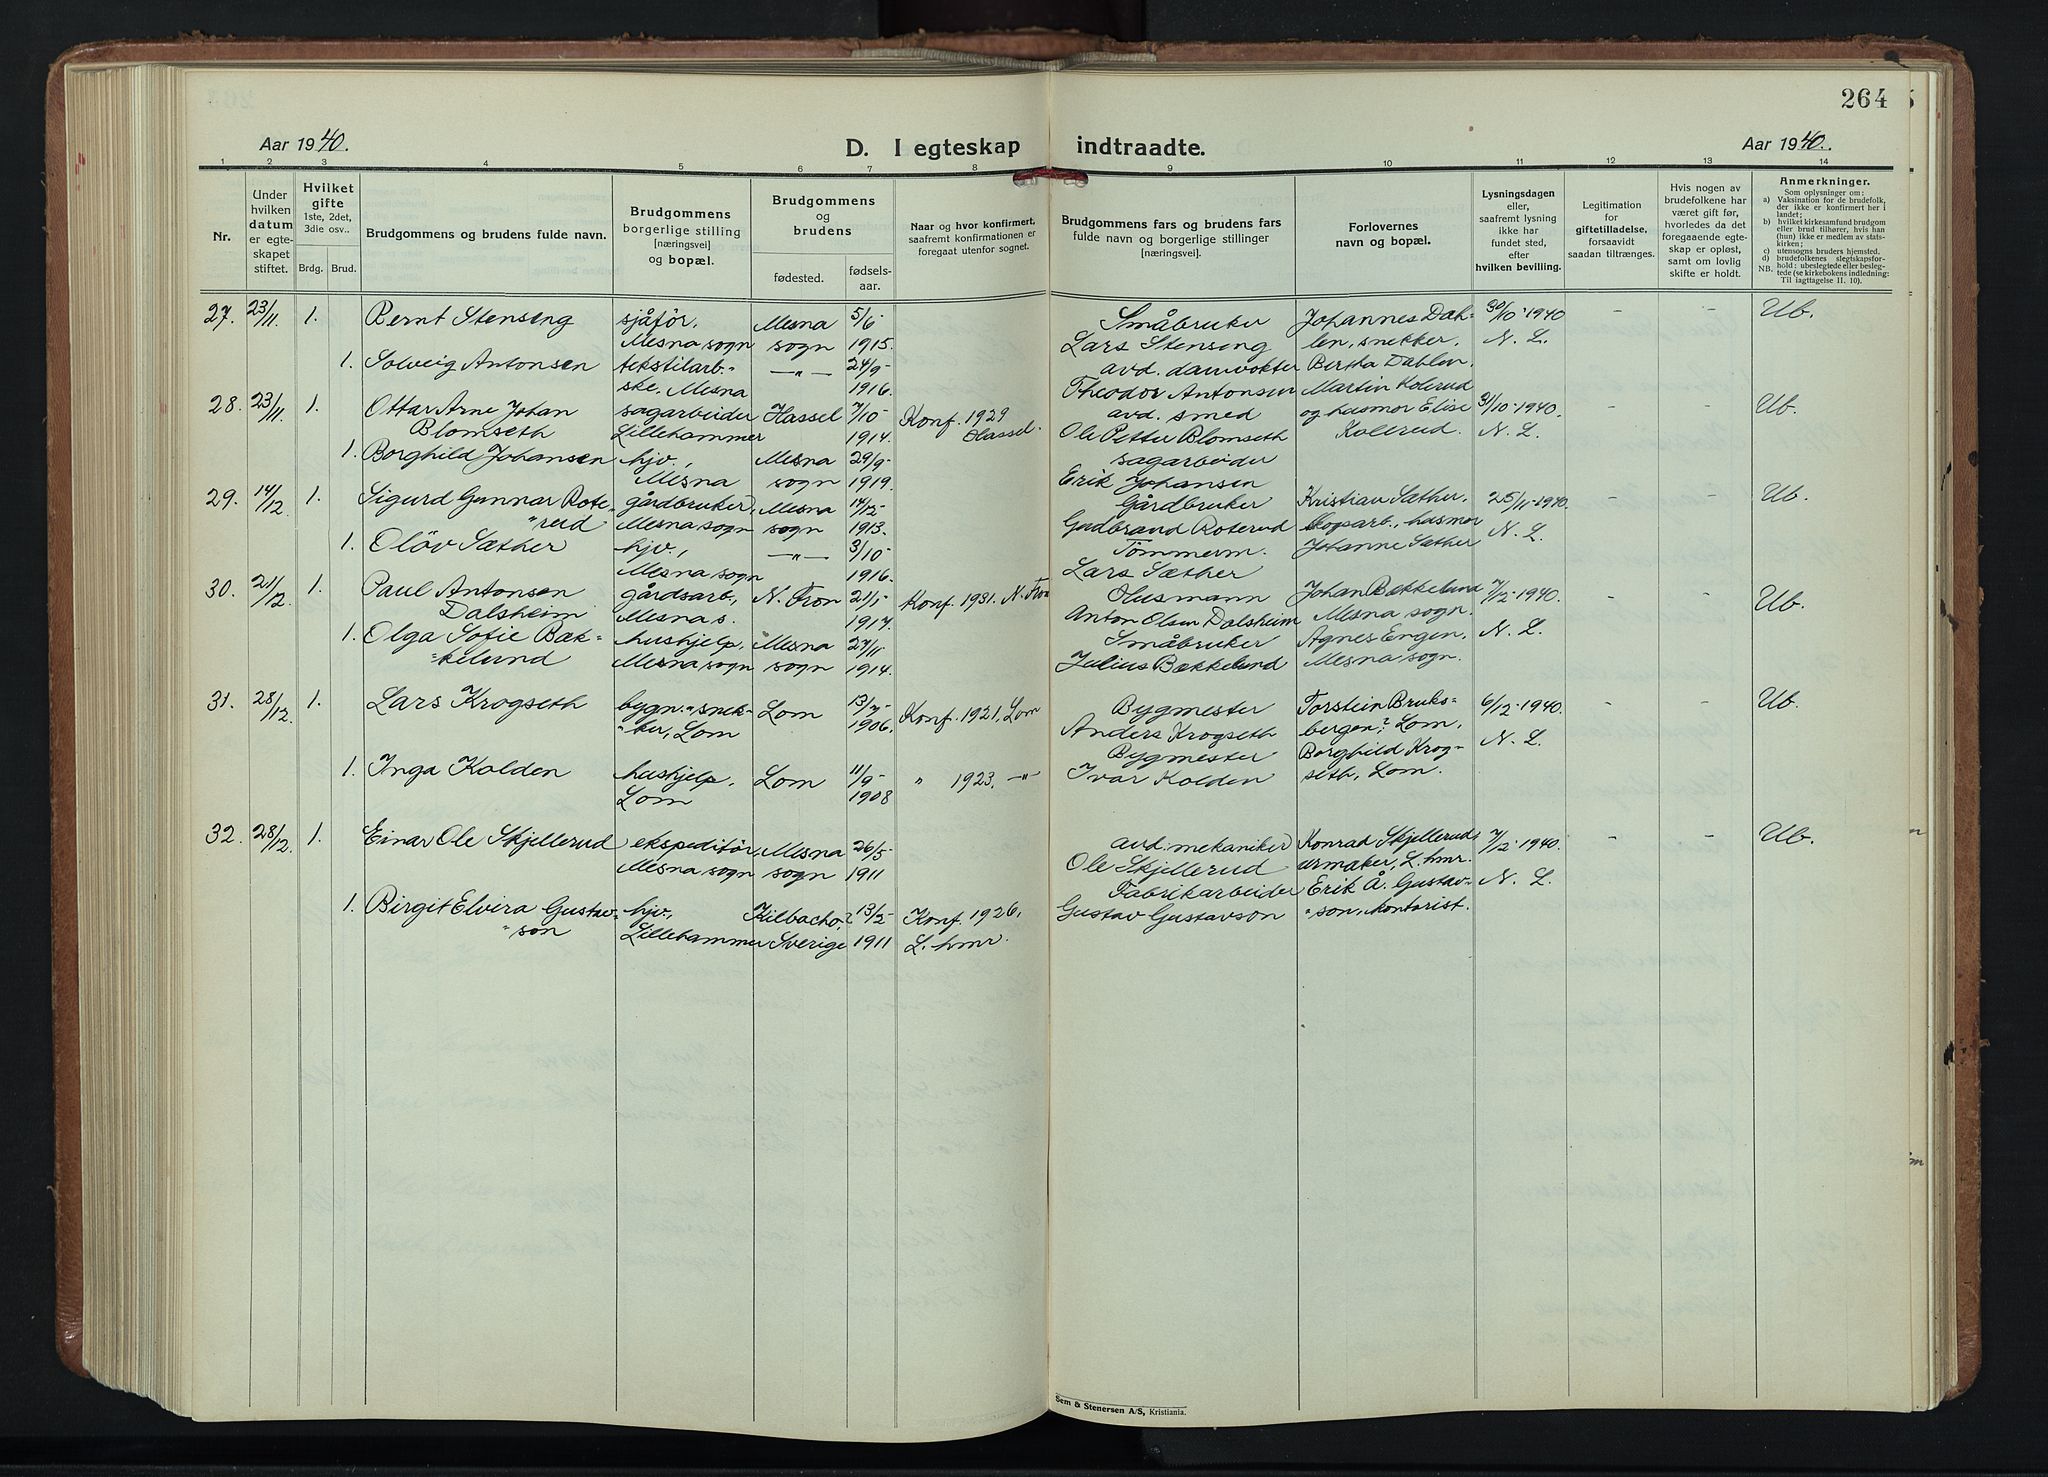 264
Aar 1940.
D. I egteskap indtraadte.
Aar 1940.
1 2 3 4 5 6 7 8 9 10 11 12 13 14
Nr.
Under hvilken datum er egteskapet stiftet.
Hvilket gifte 1ste, 2det, 3die osv..
Brdg. Brud.
Brudgommens og brudens fulde navn.
Brudgommens borgerlige stilling [næringsvei] og bopæl.
Brudgommens og brudens
fødested.
fødselsaar.
Naar og hvor konfirmert, saafremt konfirmationen er foregaat utenfor sognet.
Brudgommens fars og brudens fars fulde navn og borgerlige stillinger [næringsvei].
Forlovernes navn og bopæl.
Lysningsdagen eller, saafremt lysning ikke har fundet sted, efter hvilken bevilling.
Legitimation for giftetilladelse, forsaavidt saadan tiltrænges.
Hvis nogen av brudefolkene har været gift før, hvorledes da det foregaaende egteskap er opløst, samt om lovlig skifte er holdt.
Anmerkninger.
Som oplysninger om:
a) Vaksination for de brudefolk, der ikke er konfirmert her i landet;
b) hvilket kirkesamfund brudgom eller brud tilhører, hvis han (hun) ikke er medlem av statskirken;
c) utensogns bruders hjemsted.
d) brudefolkenes slegtskapsforhold: ubeslegtede eller beslegtede (se kirkebokens indledning:
NB. Til iagttagelse II. 10).
27. 23/11. 1. Bernt Stenseng sjåfør, Mesna sogn Mesna sogn 5/6 1915. Småbruker Lars Stenseng Johannes Dahlen, snekker, 30/10-1940 N. L. - - Ub.
1. Solveig Antonsen tekstilarb.ske, Mesna —"— 24/9- 1916. avd. damvokter Theodor Antonsen Bertha Dahlen.
28. 23/11. 1. Ottar Arne Johan Blomseth sagarbeider Lillehammer Hassel 7/10- 1914. Konf. 1929 Hassel. avd. smed Ole Petter Blomseth Martin Kolerud og husmor Elise Kolerud. 31/10-1940. N. L. - - Ub.
1. Borghild Johansen hjv., Mesna Mesna sogn 29/9- 1919. sagarbeider Erik Johansen
29. 14/12. 1. Sigurd Gunnar Roterud gårdbruker, Mesna sogn Mesna sogn 14/12- 1913. Gårdbruker Gudbrand Roterud Kristian Sæther, skogsarb., husmor Johanne Sæther 25/11-1940. N. L. - - Ub.
1. Oløv Sæther hjv., Mesna sogn —"— 3/10- 1916. Tömmerm. Lars Sæther
30. 21/12. 1. Paul Antonsen Dalsheim gårdsarb., Mesna s. N. Fron 21/1- 1917. Konf. 1931. N. Fron Husmann Anton Olsen Dalsheim Johan Bækkelund Mesna sogn. 7/12-1940. N. L. - - Ub.
1. Olga Sofie Bækkelund hushjelp, Mesna sogn Mesna sogn 27/11 1914. Småbruker Julius Bækkelund Agnes Engen, Mesna sogn.
31. 28/12. 1. Lars Krogseth bygn.snekker, Lom Lom 13/7- 1906. Konf. 1921, Lom Bygmester Anders Krogseth Torstein Bruksbergen? Lom, 6/12-1940. N. L. - - Ub.
1. Inga Kolden hushjelp, Lom Lom 11/9- 1908 " 1923. —"— Bygmester Ivar Kolden Borghild Krogseth, Lom.
32. 28/12. 1. Einar Ole Skjellerud ekspeditør, Mesna sogn Mesna sogn 26/5 1911 avd. mekaniker Ole Skjellerud Konrad Skjellerud, urmaker, L.hmr. 7/12-1940. N. L. - - Ub.
1. Birgit Elvira Gustavson hjv., Lillehammer Kilbacho? Sverige 13/2- 1911 Konf. 1926, L. hmr. Fabrikarbeider Gustav Gustavson Erik Å. Gustavson, kontorist.
Sem & Stenersen A/S, Kristiania.